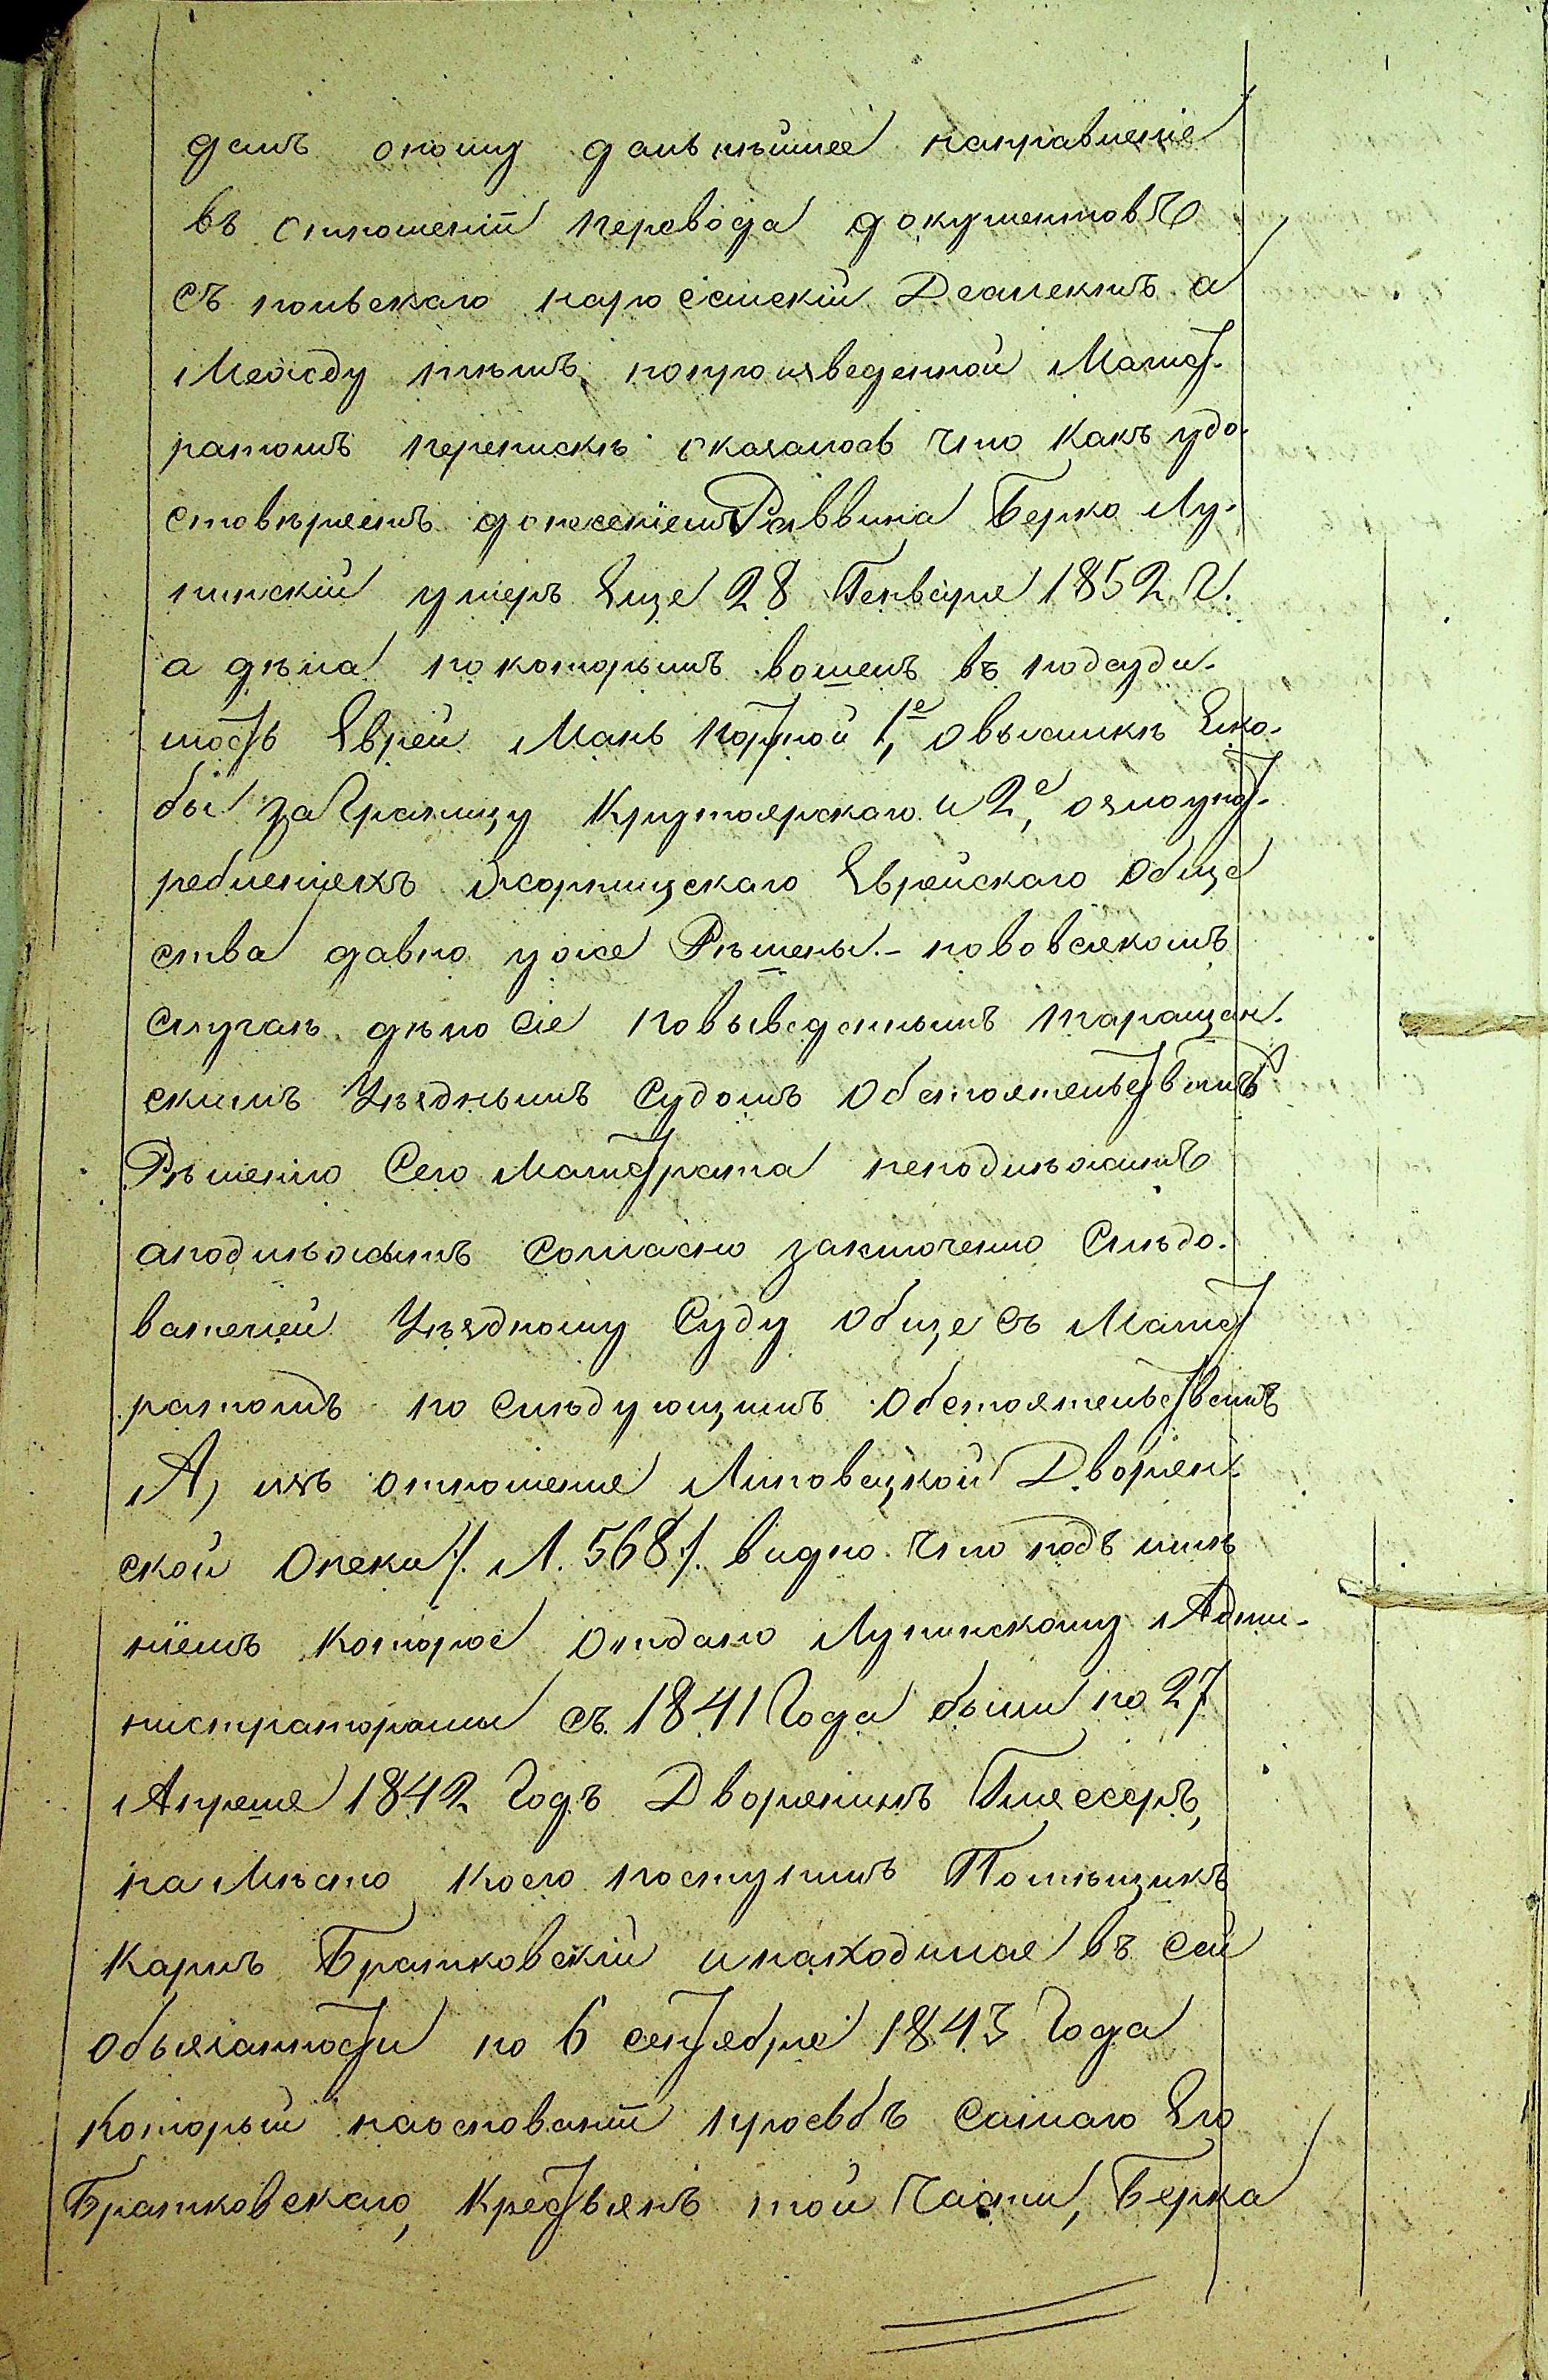 далъ оному дальнѣйшее направленіе
въ отношеніи перевода документовъ
съ польскаго народ
Между тѣмъ, попроизведенной Магист-
ратомъ перепискѣ оказалось что какъ удо-
стовѣряетъ донесеніемъ Раввина Берко Лу-
пинскій умеръ Еще 28 Генваря 1852 г.
а дѣла покоторымъ вошелъ въ подсуди-
мость Еврей Мань Портной 1е, овысылкѣ Яко-
бы заГраницу Крутоярскаго и 2е, озлоупот-
ребленіяхъ Жорнищскаго Еврейскаго Обще
ства давно уже Рѣшены. - нововсякомъ
случаѣ дѣло сіе повыведеннымъ Таращан-
скимъ Уѣзднымъ Судомъ Обстоятельствамъ
Рѣшенію Сего Магистрата неподлѣжитъ
аподлѣжитъ Согласно заключенію Слѣдо-
вателей Уѣздному Суду Обще съ Магист
ратомъ по Слѣдующимъ Обстоятельствамъ
А, изъ отношенія Липовецкой Дворян-
ской Опеки /: Л. 568 :/ видно что надъ имѣ
ніемъ которое Отдано Лупинскому Адми-
нистраторами съ 1841 Года были по 27
Апреля 1842 Годъ Дворянинъ Глессеръ,
на Мѣсто коего поступилъ Помѣщикъ
Карлъ Братковскій инаходился въ сей
Обязанности по 6 сентября 1843 Года
который наоснованіи прозьбъ самаго Его
Братковскаго, Крестьянъ той Части, Берка